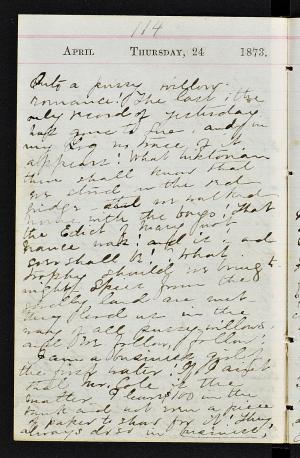 114
April Thursday, 24 1873.
Quite a pussy willow
romance! The last, the
only record of yesterday
has gone to fire, and in
my log no trace of it
appears! What historian
then shall know that
we stuck in the
and we walked
home with the boys, that
the Edict of Mary
was! and is, and
ever shall be! What
trophy should we bring
from the
land are not
they lead us in the
way of all pussy willows
and we follow, follow!
I am a business girl of
the first water! If I ain't
that Mr. Cole is the
matter. I leave $100 in the
bank and not even a piece
of paper to show for it! They
always do so in business,